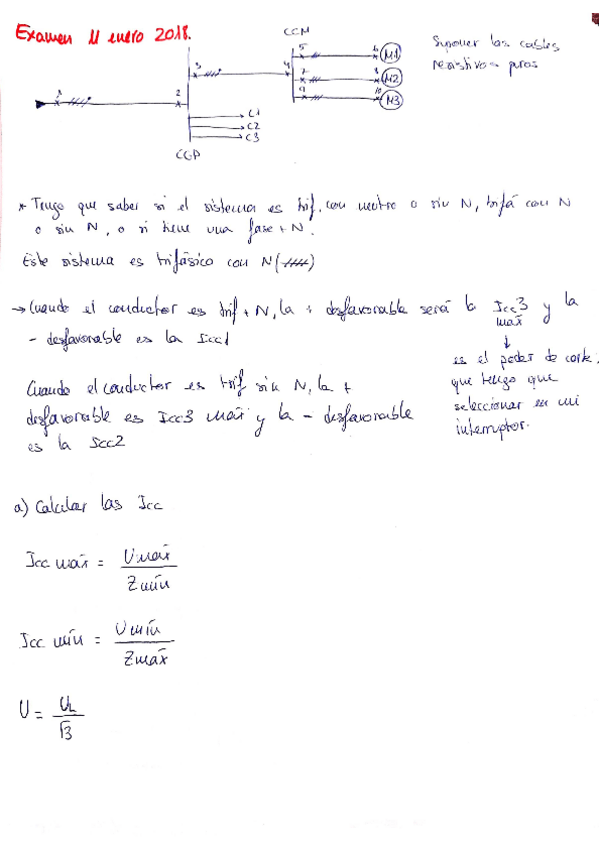 Examen 11 enero 2018.
CCM
Suponer los cables
resistivos puros
1 2 3 4 5 6 7 8 9 10
M1
M2
M3
C1
C2
C3
CGP
* Tengo que saber si el sistema es trif. con neutro o sin N, bifá con N
o sin N, o si tiene una fase + N.
Este sistema es trifásico con N (////)
→ Cuando el conductor es trif + N, la + desfavorable será la Icc3 máx y la
- desfavorable es la Icc1
↓
es el poder de corte
que tengo que
seleccionar en mi
interruptor.
Cuando el conductor es trif sin N, la +
desfavorable es Icc3 máx y la - desfavorable
es la Icc2
a) Calcular las Icc
Icc máx = Umáx / Zmín
Icc mín = Umín / Zmáx
U = UL / √3